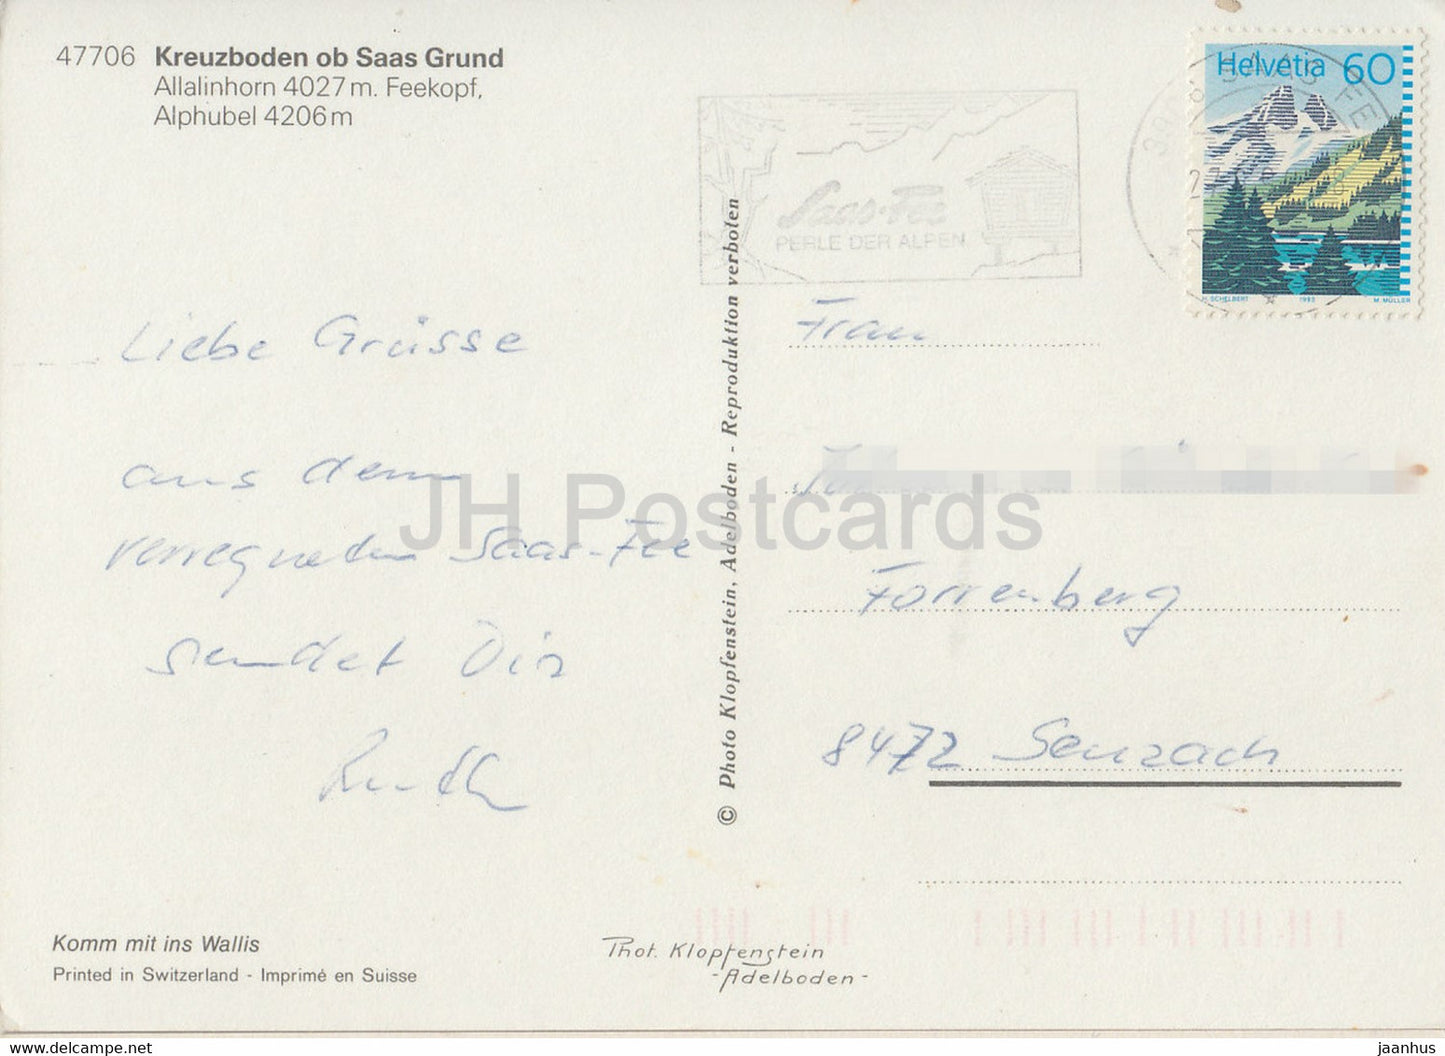 47706 Kreuzboden ob Saas Grund
Allalinhorn 4027 m. Feekopf,
Alphubel 4206 m
Helvetia 60
H. SCHELBERT 1993 M. MÜLLER
Saas-Fee
PERLE DER ALPEN
Liebe Grüsse
aus dem
verregneten Saas-Fee
sendet Dir
Ruth
© Photo Klopfenstein, Adelboden - Reproduktion verboten
Frau
Forrenberg
8472 Seuzach
JH Postcards
Komm mit ins Wallis
Printed in Switzerland - Imprimé en Suisse
Phot. Klopfenstein
- Adelboden -
www.delcampe.net
jaanhus